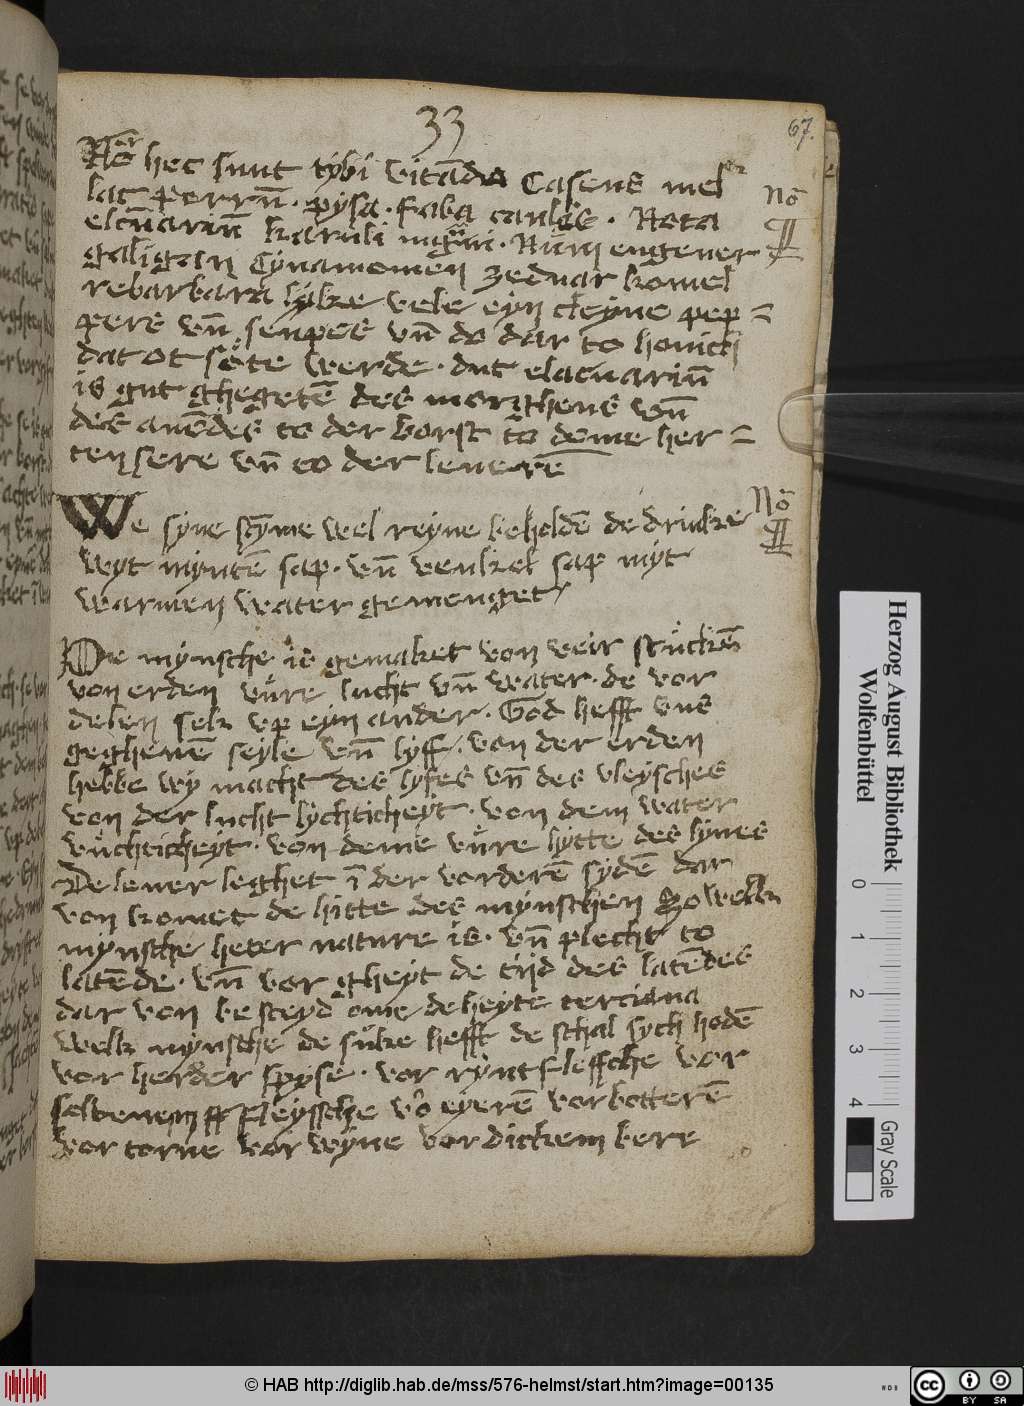 33
67.
Nō hec sunt tybi vitāda Caseus mel
lac perrū. pysa. faba caules. Nota
Nō
elcuariū karuli nigri. Nūm engeuer
galigan Cynamomen zeduar komel
rebarbara lyke vele eyn cleyne pep=
pers vn̄ senpes vn̄ do dar to honich
dat ot sote werde. dut elacuariū
is gut ghegetē des morghens vn̄
des auēdes to der borst to deme her=
ten sere vn̄ to der leuerē
We syne stȳme wel reyne beholdē de drinke
Nō
wyt myntē sap. vn̄ venkel sap myt
warmen water gemenget
De mynsche is gemaket von veir stuckēn
von erden vure lucht vn̄ water. de vor
delen sek vp eyn ander. God hefft vns
gegheuē seyle vn̄ lyff. von der erden
hebbe wy macht des lyfes vn̄ des vleysches
von der lucht lychticheyt. von dem water
vuchticheyt. von deme vure hytte des lyues
De leuer leghet ī der vorderē sydē dar
von komet de hitte des mynschen So welk
mynsche heter nature is. vn̄ plecht to
latēde. vn̄ vor gheyt de tijd des latēdes
dar von besteyd ome de heyte terciana
Welk mynsche de suke hefft de schal sych hodē
vor herder spyse. vor ryntfleffche vor
fleyssche vo eyerē vor botterē
vor torne vor wyne vor dickem bere
Herzog August Bibliothek
Wolfenbüttel
0 1 2 3 4
Gray Scale
© HAB http://diglib.hab.de/mss/576-helmst/start.htm?image=00135
WDB
cc BY SA